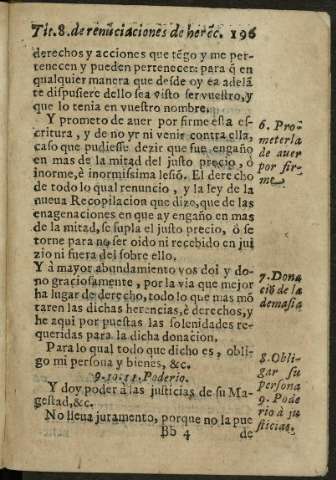 Tit.8. de renũciaciones de herēc. 196
derechos y acciones que tẽgo y me per-
tenecen y pueden pertenecer: para q̃ en
qualquier manera que desde oy ea adelã
te dispusiere dello sea visto ser vuestro, y
que lo tenia en vuestro nombre.
Y prometo de auer por firme esta es-
critura, y de no yr ni venir contra ella,
caso que pudiesse dezir que fue engaño
en mas de la mitad del justo precio, ó
inorme, è inormissima lesiõ. El derecho
de todo lo qual renuncio, y la ley de la
nueua Recopilacion que dize, que de las
enagenaciones en que ay engaño en mas
de la mitad, se supla el justo precio, ó se
torne para no ser oido ni recebido en jui
zio ni fuera del sobre ello.
Y à mayor abundamiento vos doi y do-
no graciosamente, por la via que mejor
ha lugar de derecho, todo lo que mas mõ
taren las dichas herencias, è derechos, y
he aqui por puestas las solenidades re-
queridas para la dicha donacion.
Para lo qual todo que dicho es, obli-
go mi persona y bienes, &c.
9.10.11. Poderio.
Y doy poder à las justicias de su Ma-
gestad, &c.
No lleua juramento, porque no la pue
Bb 4 de
6. Pro-
meterla
de auer
por fir-
me
7. Dona
ciõ de la
demasia
8. Obli-
gar su
persona
9. Pode
rio à ju
sticias.